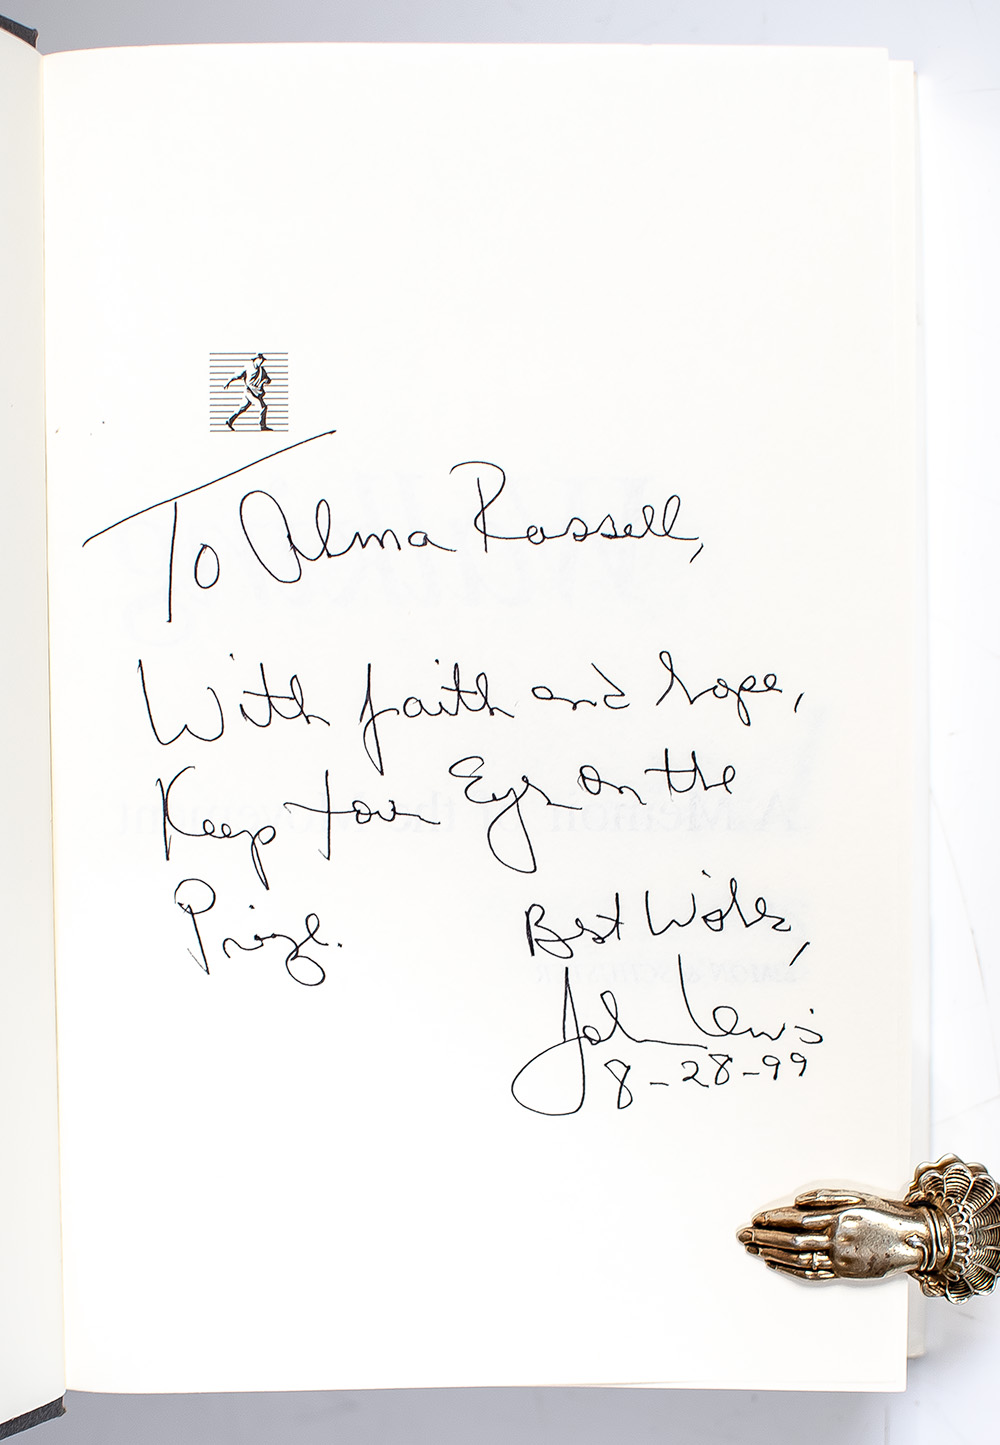 To Alma Russell,
With faith and hope,
Keep Your Eyes on the
Prize.
Best Wishes,
John Lewis
8-28-99